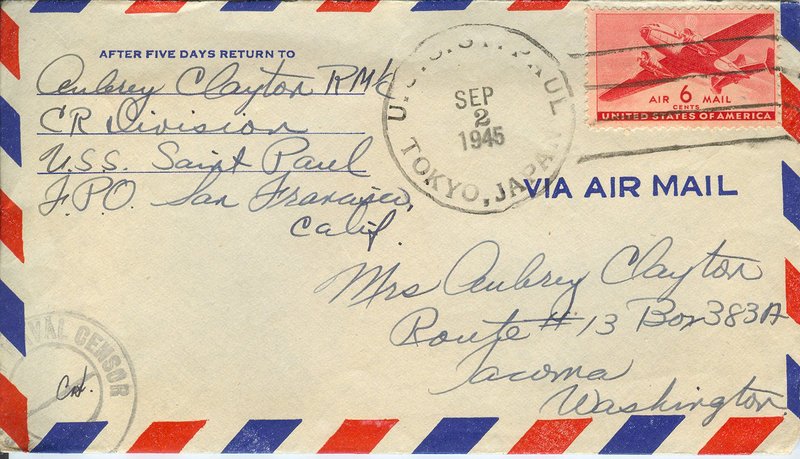 AFTER FIVE DAYS RETURN TO
Aubrey Clayton RM1/c
CR Division
U.S.S. Saint Paul
F.P.O. San Francisco,
Calif.
U.S.S. ST. PAUL
SEP
2
1945
TOKYO, JAPAN
AIR 6 MAIL
CENTS
UNITED STATES OF AMERICA
VIA AIR MAIL
Mrs Aubrey Clayton
Route # 13 Box 383A
Tacoma
Washington.
NAVAL CENSOR